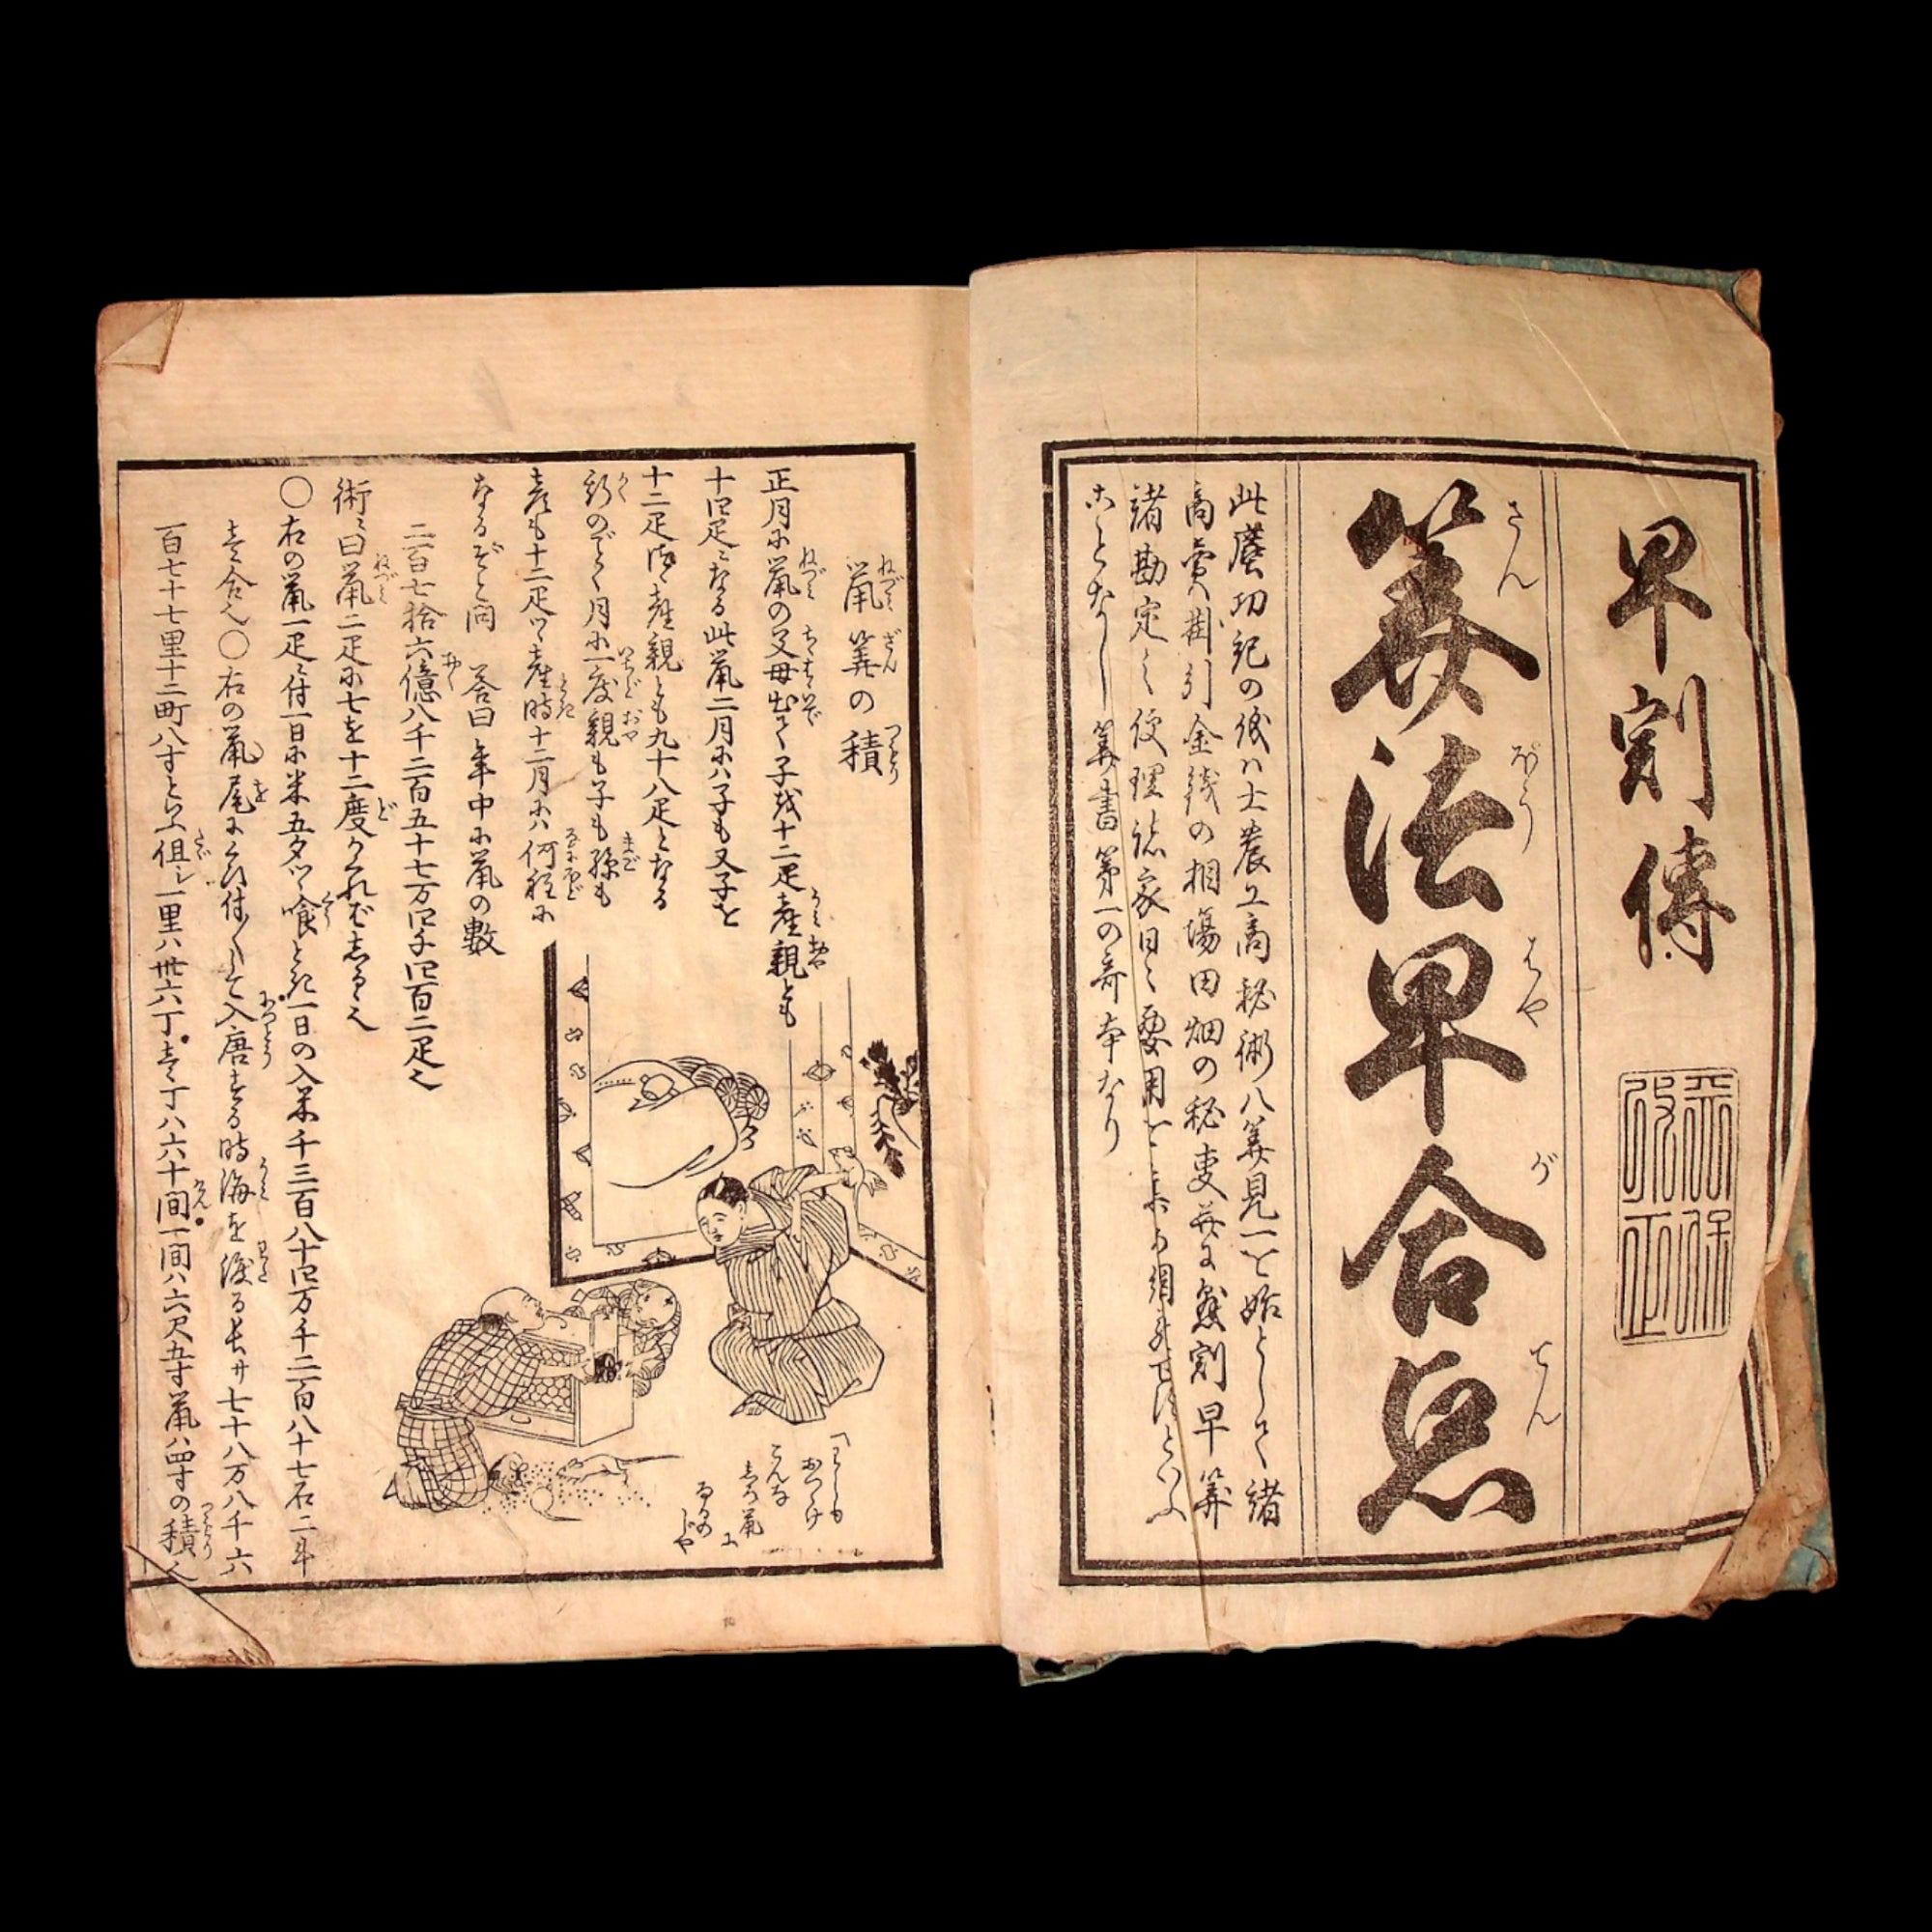 早割傳
天保改正
算法早合点
さんぽうはやがてん
此塵劫記の儀ハ士農工商秘術八算見一を始として諸
商賣掛引金銭の相場田畑の秘事并に亀割早算
諸勘定之便理諸家日々要用
ことなし算書第一の奇本なり
鼠算の積
ねづみざんのつもり
正月に鼠の父母出て子を十二疋産親とも
十四疋になる此鼠二月にハ子も又子を
十二疋づゝ産親とも九十八疋となる
斯のごとく月に一度親も子も孫も
産も十二疋ツヽ産時十二月にハ何程に
なるぞと問 答曰年中に鼠の數
二百七拾六億八千二百五十七万四千四百二疋也
術ニ曰鼠二疋に七を十二度かくればしるゝ也
〇右の鼠一疋ニ付一日に米五夕ツヽ喰とき一日の入米千三百八十四万千二百八十七石二斗
壱合也〇右の鼠尾にくひ付〳〵して入唐する時海を渡る長サ七十八万八千六
百七十七里十二町八寸とらふ但シ一里ハ卅六丁壱丁ハ六十間一間ハ六尺五寸鼠ハ四寸の積也
こんな
しろ鼠